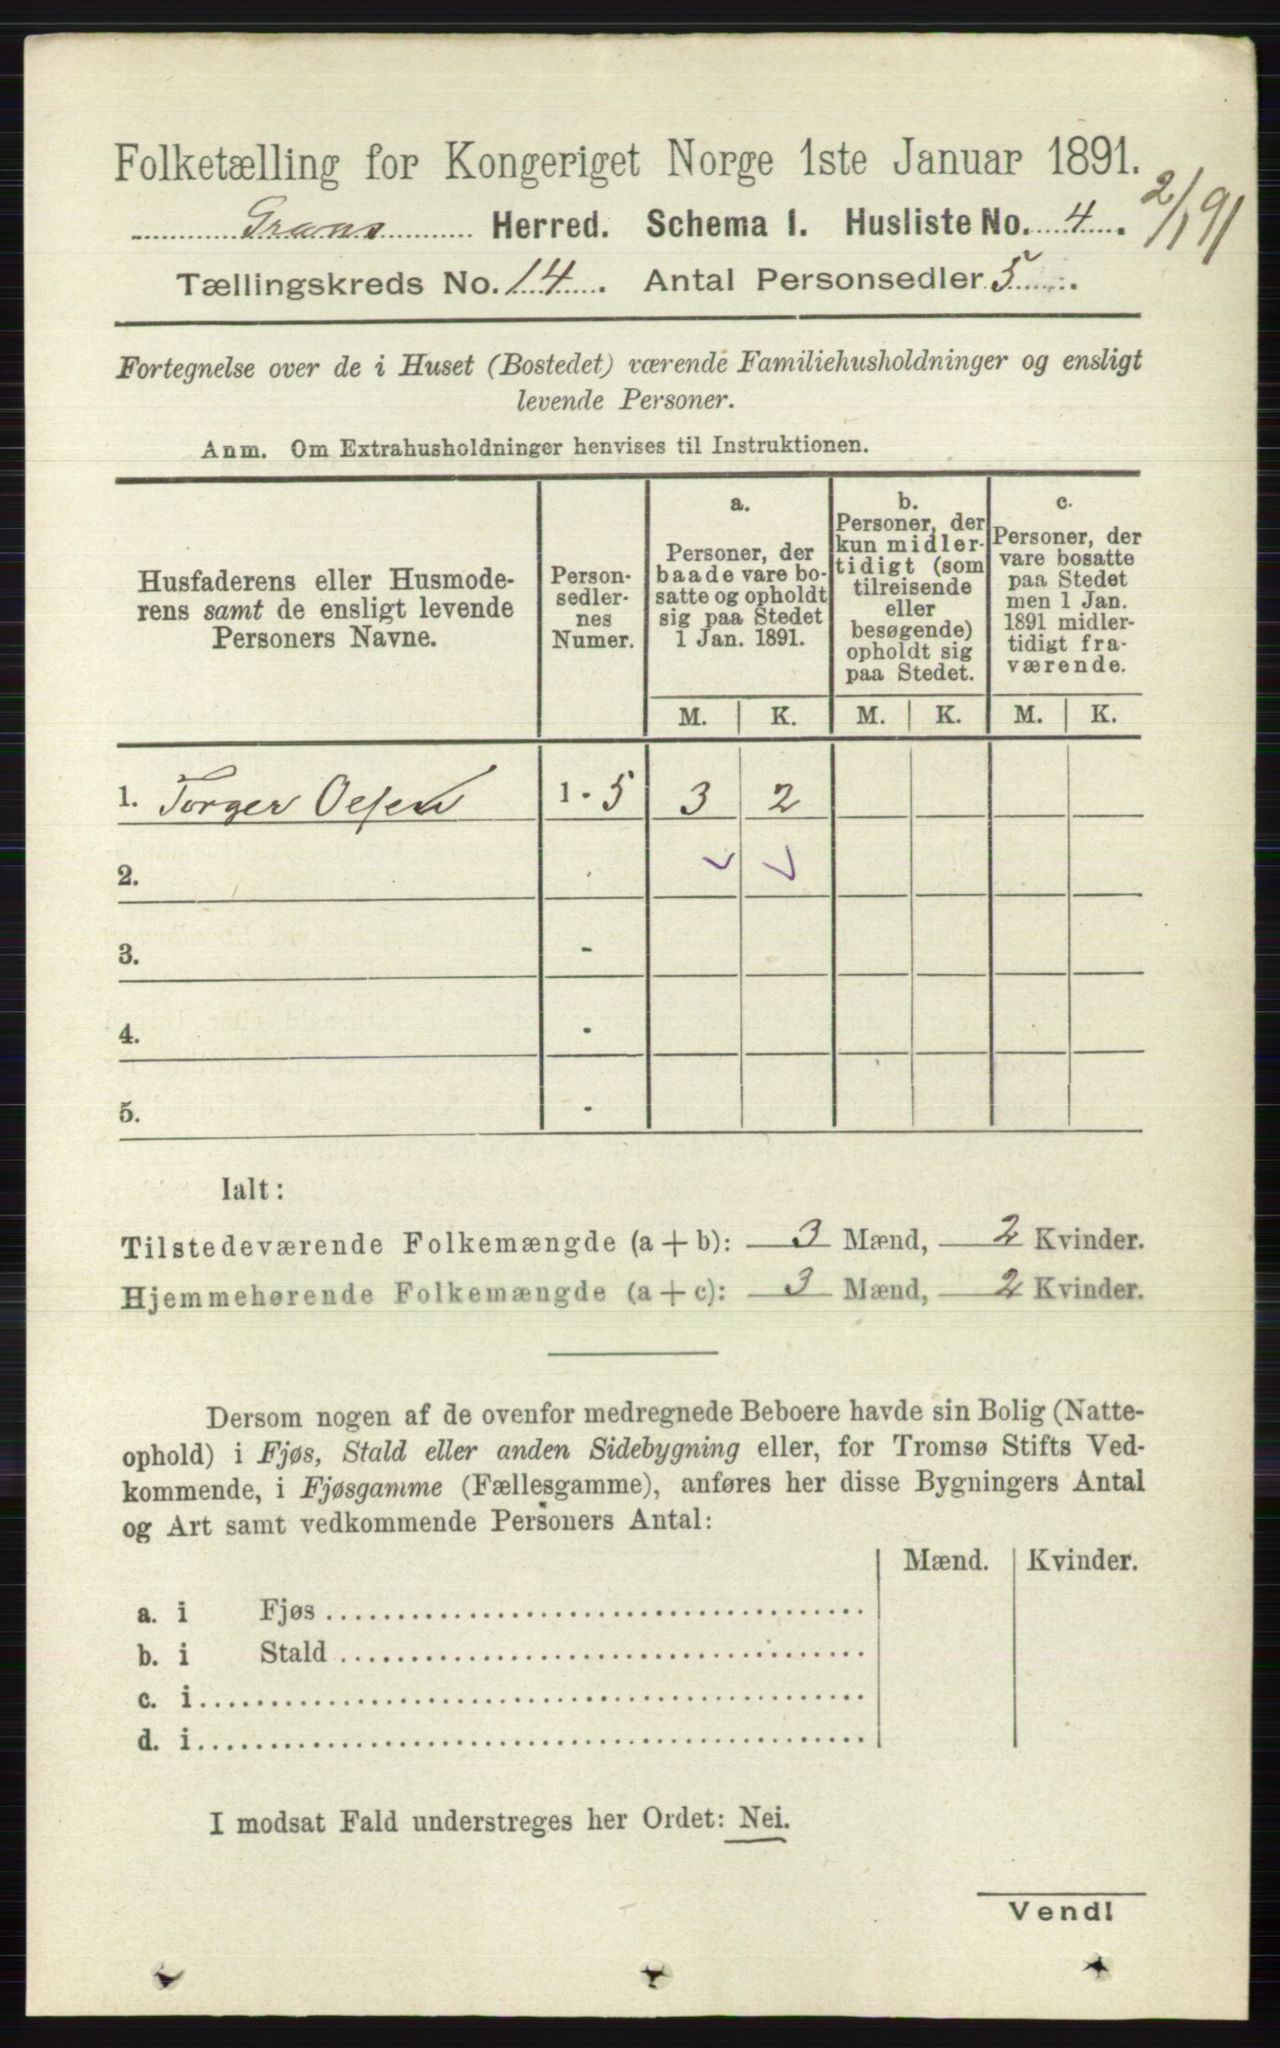 Folketælling for Kongeriget Norge 1ste Januar 1891.
2/1 91
Grans Herred. Schema I. Husliste No. 4.
Tællingskreds No. 14. Antal Personsedler 5.
Fortegnelse over de i Huset (Bostedet) værende Familiehusholdninger og ensligt
levende Personer.
Anm. Om Extrahusholdninger henvises til Instruktionen.
Husfaderens eller Husmode-
rens samt de ensligt levende
Personers Navne.
Person-
sedler-
nes
Numer.
a.
Personer, der
baade vare bo-
satte og opholdt
sig paa Stedet
1 Jan. 1891.
b.
Personer, der
kun midler-
tidigt (som
tilreisende
eller
besøgende)
opholdt sig
paa Stedet.
c.
Personer, der
vare bosatte
paa Stedet
men 1 Jan.
1891 midler-
tidigt fra-
værende.
M. K. M. K. M. K.
1. Torger Olsen 1 - 5 3 2
2.
3. -
4. -
5. -
Ialt:
Tilstedeværende Folkemængde (a + b): 3 Mænd, 2 Kvinder.
Hjemmehørende Folkemængde (a + c): 3 Mænd, 2 Kvinder.
Dersom nogen af de ovenfor medregnede Beboere havde sin Bolig (Natte-
ophold) i Fjøs, Stald eller anden Sidebygning eller, for Tromsø Stifts Ved-
kommende, i Fjøsgamme (Fællesgamme), anføres her disse Bygningers Antal
og Art samt vedkommende Personers Antal:
Mænd. Kvinder.
a. i Fjøs
b. i Stald
c. i
d. i
I modsat Fald understreges her Ordet: Nei.
Vend!